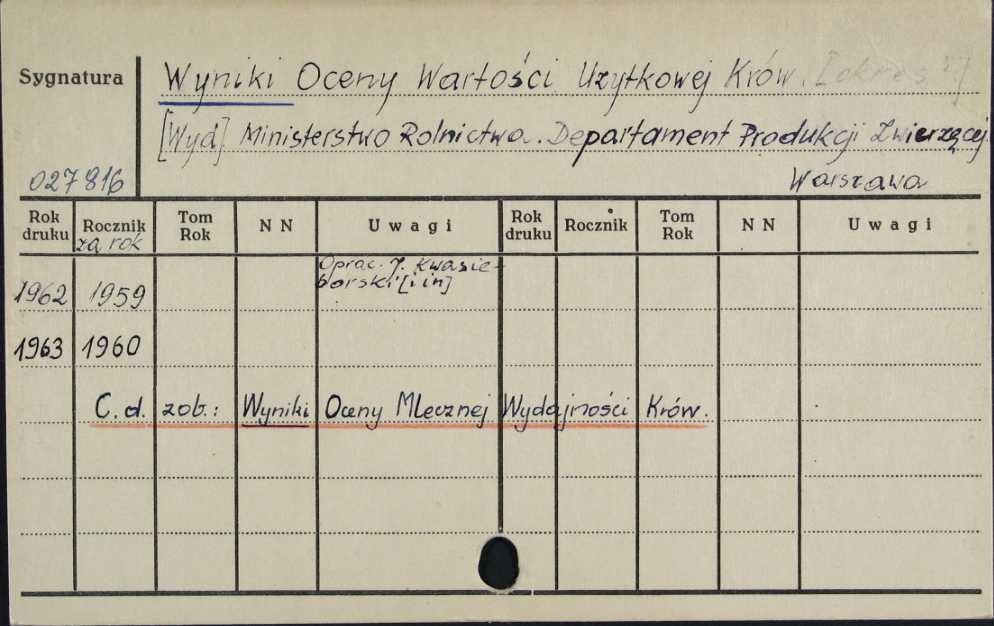 Sygnatura
Wyniki Oceny Wartości Użytkowej Krów.
[Wyd] Ministerstwo Rolnictwa. Departament Produkcji Zwierzęcej.
027816
Warszawa
Rok druku Rocznik Tom Rok N N Uwagi Rok druku Rocznik Tom Rok N N Uwagi
za rok
Oprac. J. Kwasie-
1962 1959 borski [i in]
1963 1960
C.d. zob.: Wyniki Oceny Mlecznej Wydajności Krów.